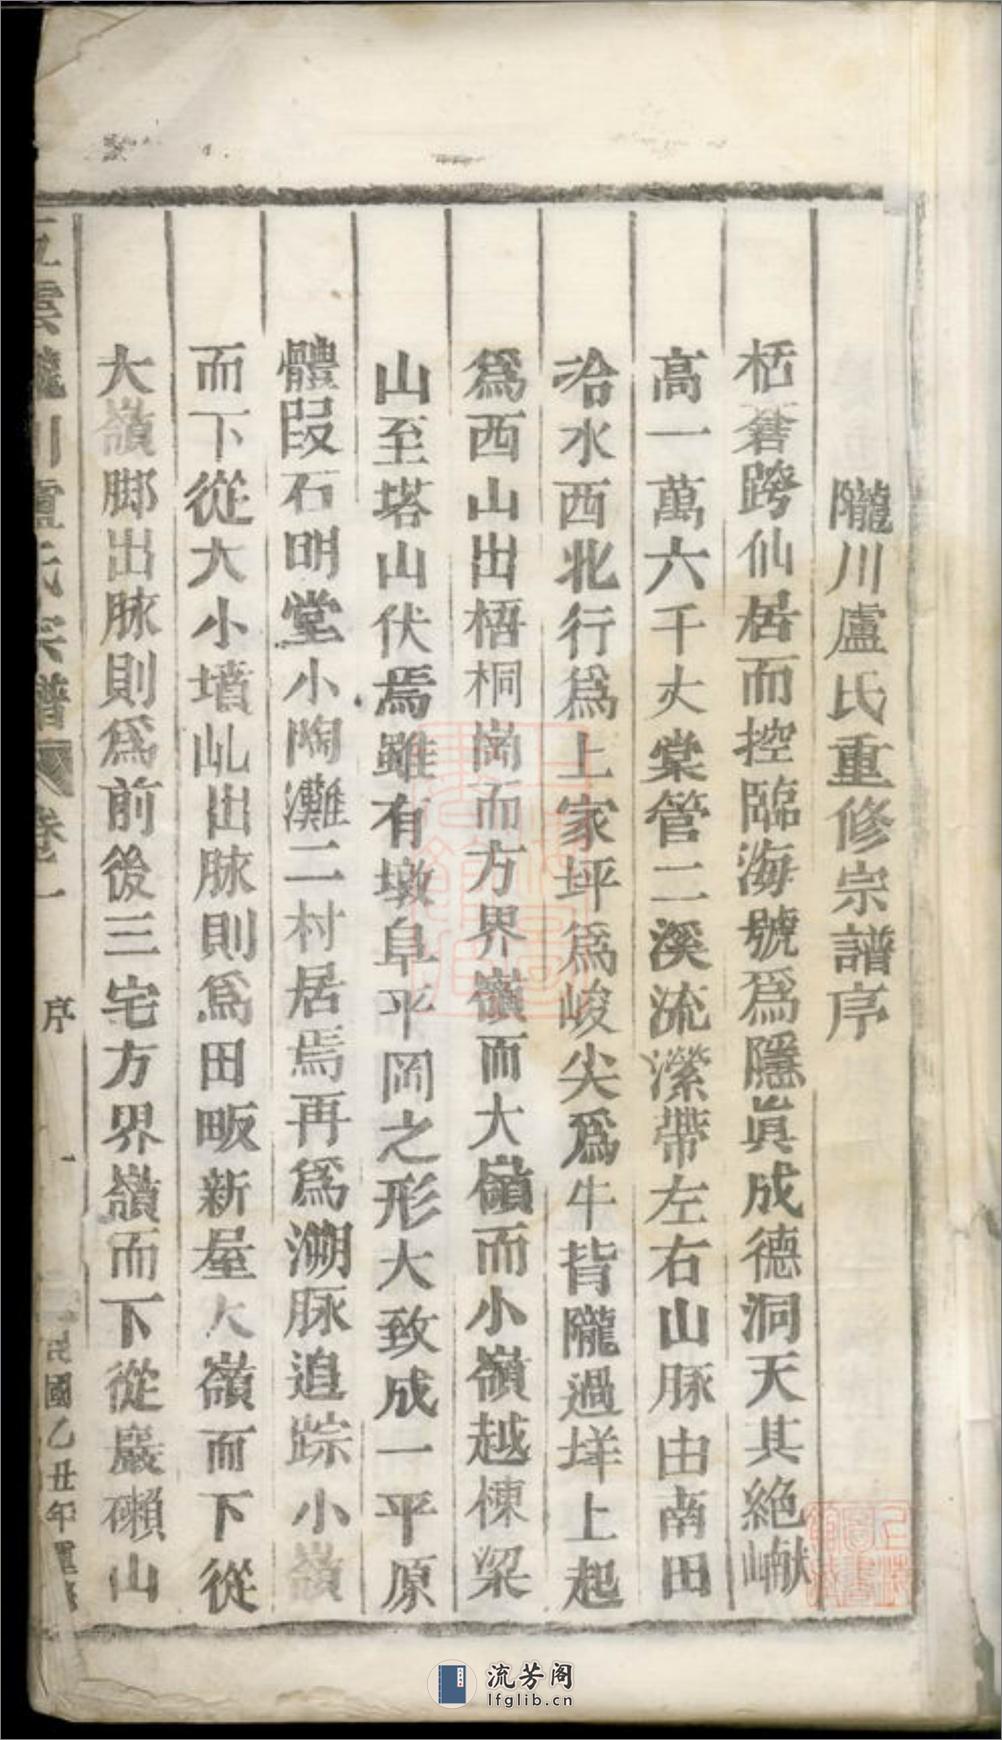 隴川盧氏重修宗譜序
栝蒼跨仙居而控臨海號爲隱眞成德洞天其絕巘
高一萬六千丈棠管二溪流瀠帶左右山豚由南田
冾水西北行爲上家坪爲峻尖爲牛背隴過垟上起
爲西山出梧桐崗而方界嶺而大嶺而小嶺越棟梁
山至塔山伏焉雖有墩阜平岡之形大致成一平原
體段石明堂小陶灘二村居焉再爲溯脉追踪小嶺
而下從大小墳山出脉則爲田畈新屋大嶺而下從
大嶺脚出脉則爲前後三宅方界嶺而下從巖磜山
雲隴川盧氏宗譜 卷一 序 一 民國乙丑年重修
流芳阁
lfglib.cn